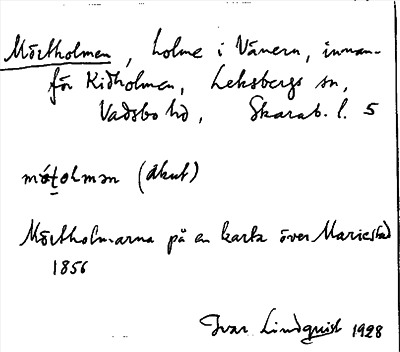 Mörtholmen, holme i Vänern, innan-
för Kidholmen, Leksbergs sn,
Vadsbo hd, Skarab. l. 5
møt̩olmən (akut)
Mörtholmarna på en karta över Mariestad
1856
Ivar Lindquist 1928